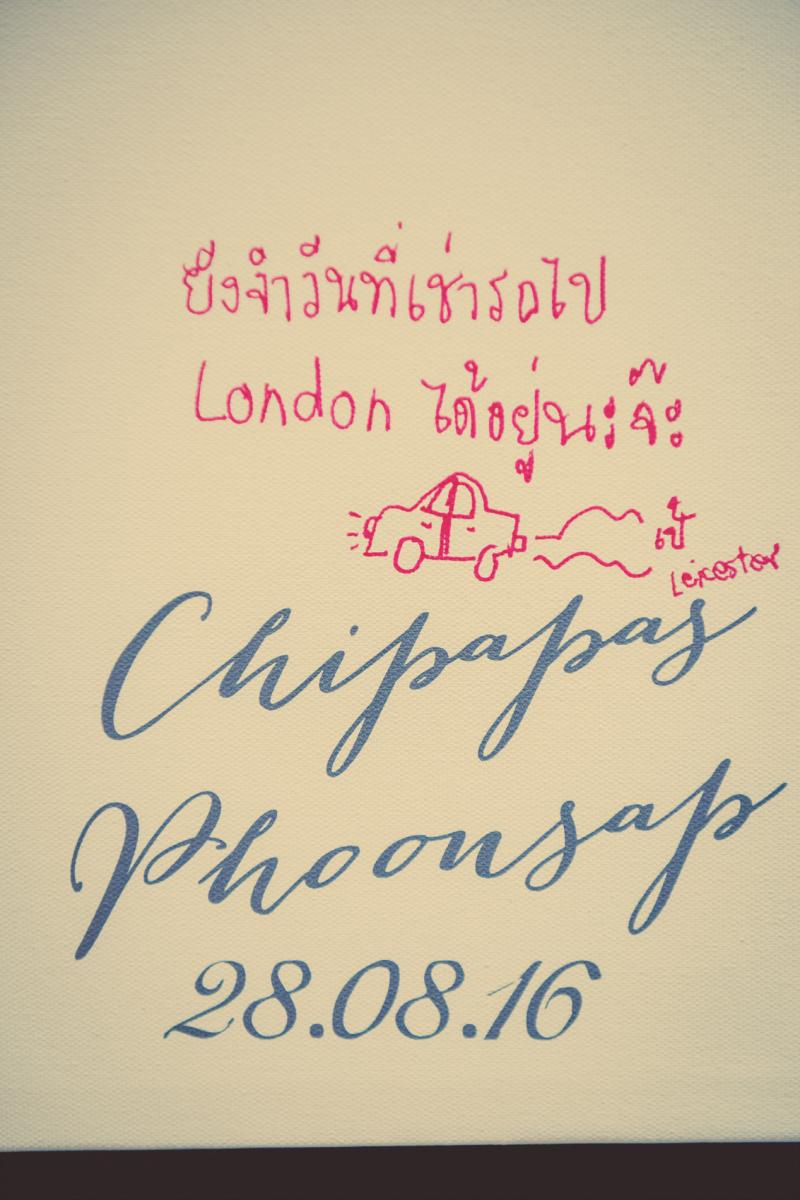 ยังจำวันที่เช่ารถไป
London ได้อยู่นะจ๊ะ
เป้
Leicester
Chipapas
Phoonsap
28.08.16